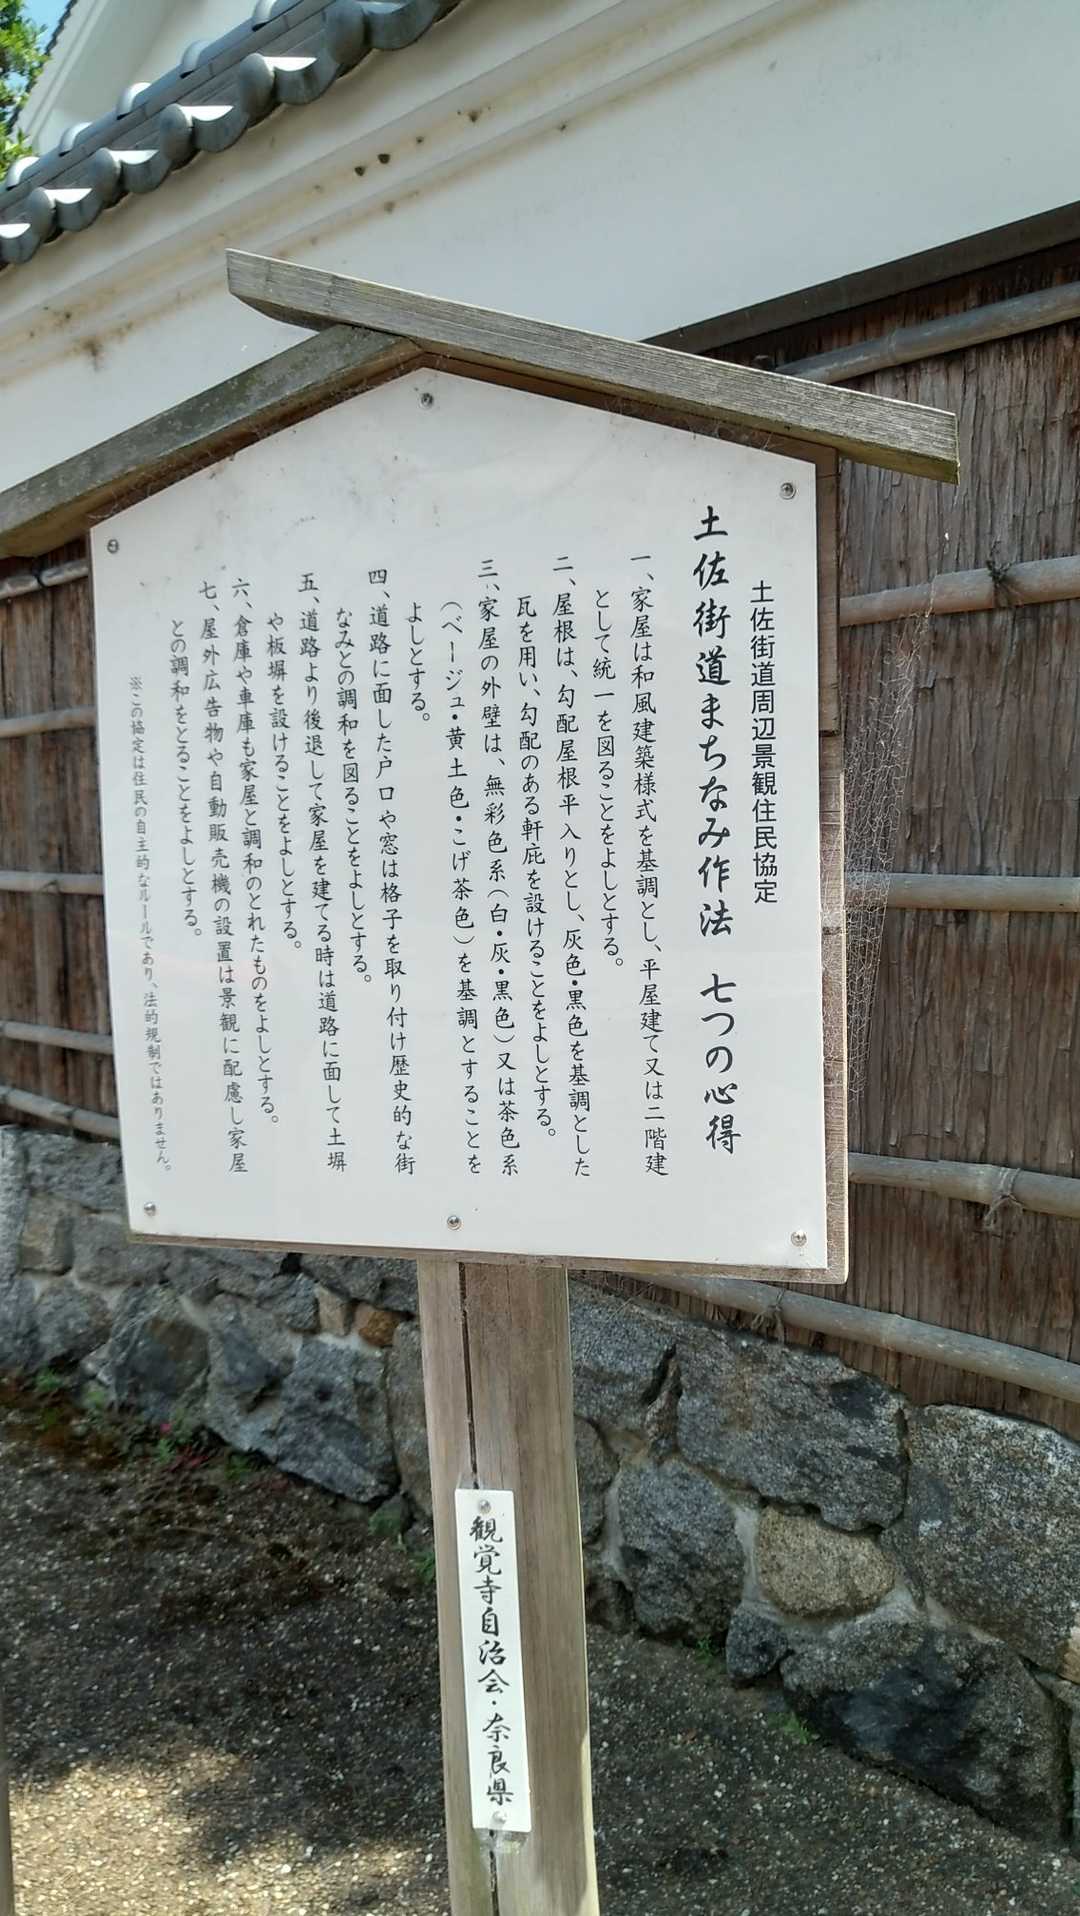 土佐街道周辺景観住民協定
土佐街道まちなみ作法　七つの心得
一、家屋は和風建築様式を基調とし、平屋建て又は二階建
として統一を図ることをよしとする。
二、屋根は、勾配屋根平入りとし、灰色・黒色を基調とした
瓦を用い、勾配のある軒庇を設けることをよしとする。
三、家屋の外壁は、無彩色系（白・灰・黒色）又は茶色系
（ベージュ・黄土色・こげ茶色）を基調とすることを
よしとする。
四、道路に面した戸口や窓は格子を取り付け歴史的な街
なみとの調和を図ることをよしとする。
五、道路より後退して家屋を建てる時は道路に面して土塀
や板塀を設けることをよしとする。
六、倉庫や車庫も家屋と調和のとれたものをよしとする。
七、屋外広告物や自動販売機の設置は景観に配慮し家屋
との調和をとることをよしとする。
※この協定は住民の自主的なルールであり、法的規制ではありません。
観覚寺自治会・奈良県